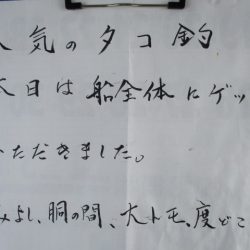 人気のタコ釣
本日は船全体にゲッ
いただきました。
みよし、胴の間、大トモ、度どこ